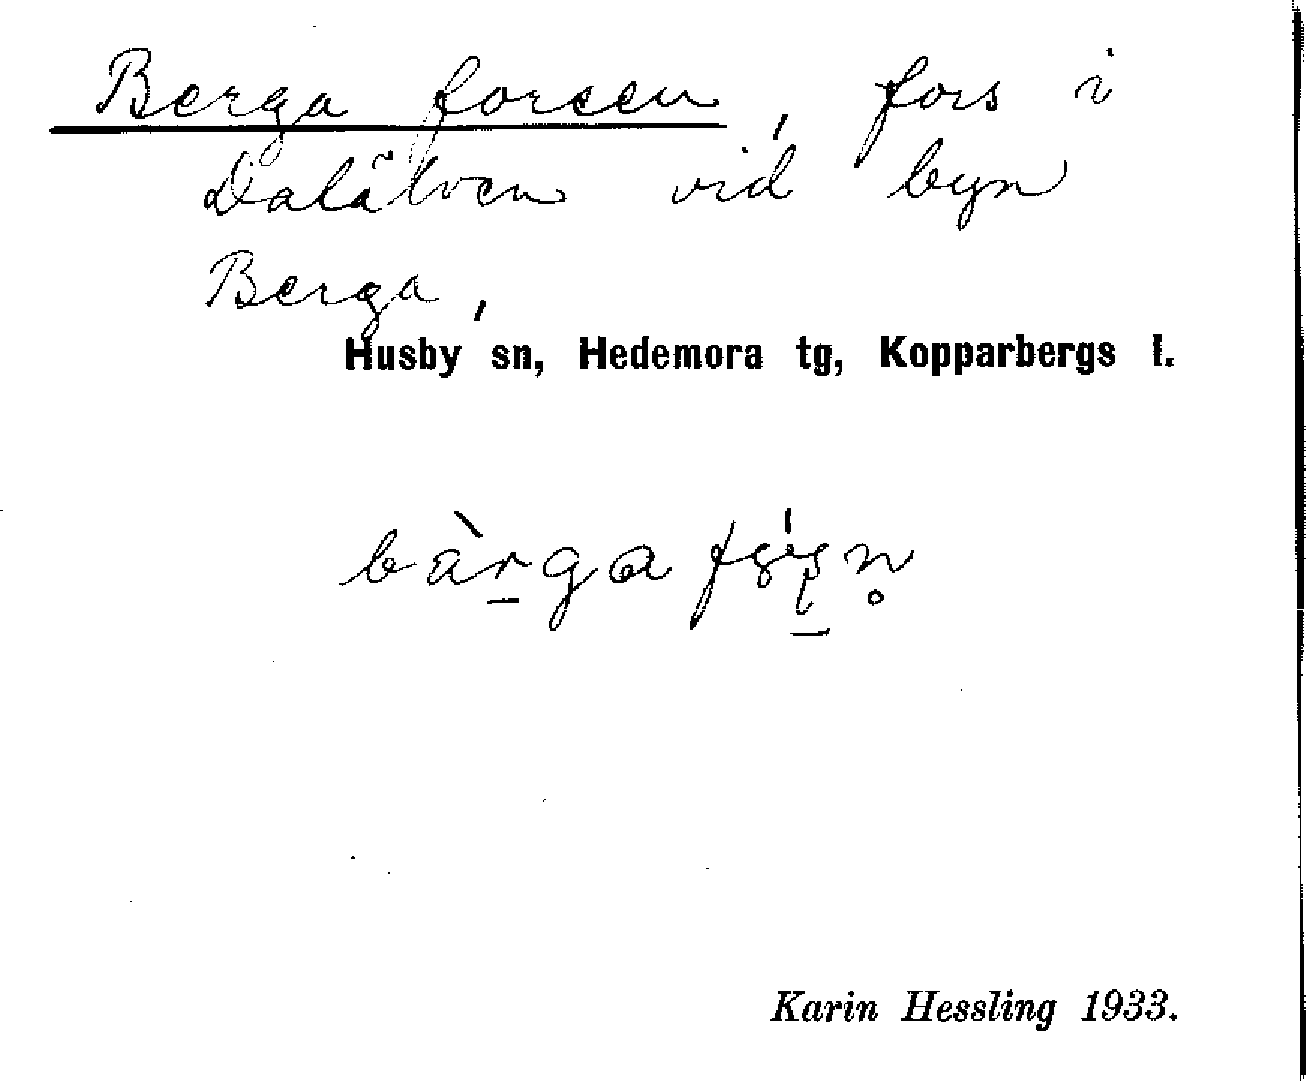 Berga forsen, fors i
Dalälven vid byn
Berga,
Husby sn, Hedemora tg, Kopparbergs l.
Karin Hessling 1933.